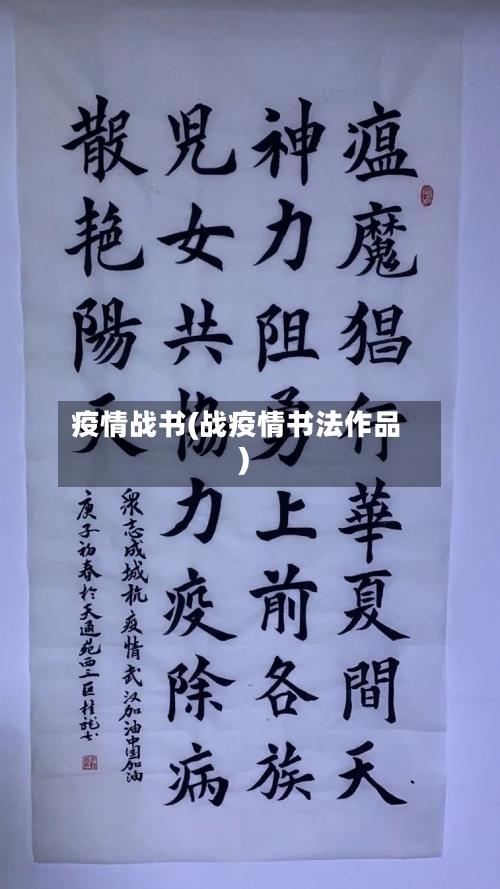 瘟魔猖行華夏間天
神力阻勇上前各族
兒女共協力疫除病
散艳陽天
眾志成城抗疫情武汉加油中国加油
庚子初春於天通苑西三区桂龙书
疫情战书(战疫情书法作品
)